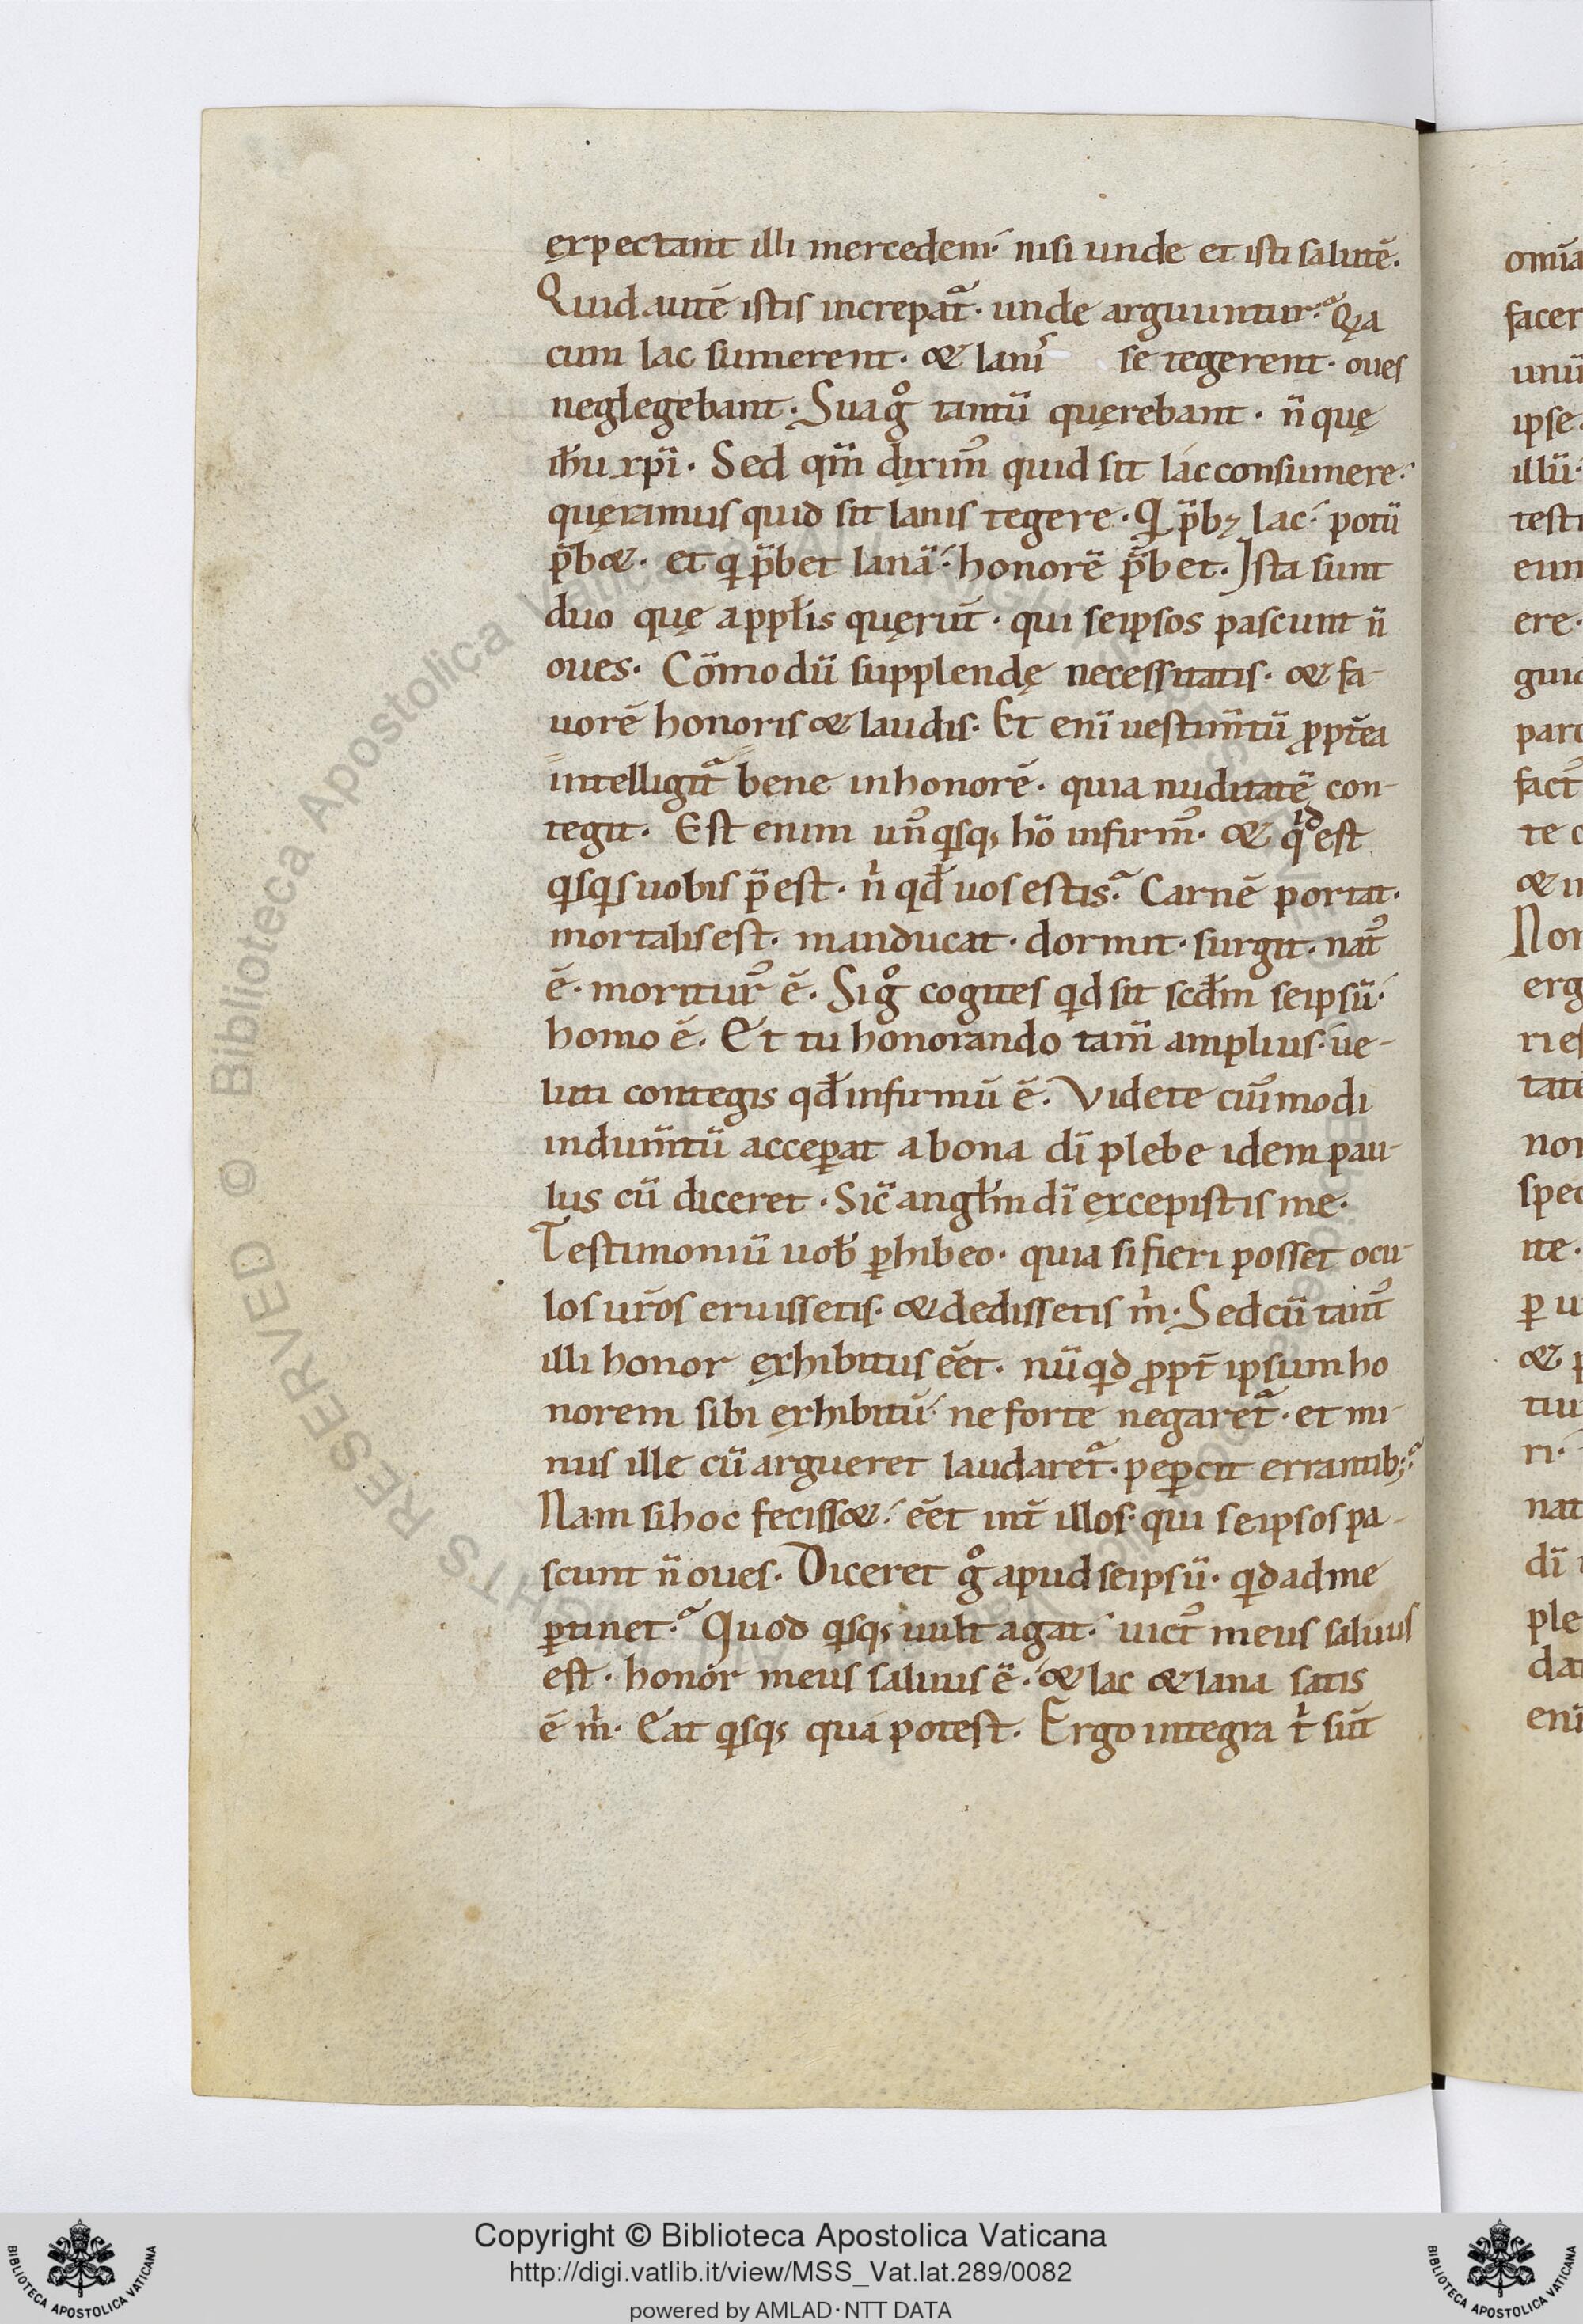 exp̄ectant illi mercedem nisi unde et isti salutē.
Quid autē istis increpat᷑. unde arguuntur? Quia
cum lac sumerent. & lanis se tegerent. oues
neglegebant. Sua gͦ tantū quęrebant. n̄ quę
ih̄u xp̄i. Sed qm̄ diximꝰ quid sit lac consumere.
quęramus quid sit lanis tegere. Qi p̄bꝫ lac. potū
p̄b&. et qi p̄bet lanā. honorē p̄bet. Ista sunt
duo quę a ppłis quęrun̄t. qui seipsos pascunt n̄
oues. Cōmodū supplendę necessitatis. & fa-
uorē honoris & laudis. Et eni᷑ uestim̄tū ꝓpt̄ea
intelligit᷑ bene in honorē. quia nuditatē con-
tegit. Est enim unꝰqisqꝫ hō infirmꝰ. & qid est
qisqis uobis p̄est. n̄ qd̄ uos estis? Carnē portat.
mortalis est. manducat. dormit. surgit. natꝰ
ē. moriturꝰ ē. Si gͦ cogites qid sit scd̄m seipsū.
homo ē. Et tu honorando tam̄ amplius. ue-
luti contegis qd̄ infirmū ē. Videte cui᷑modi
indum̄tū acceꝑat a bona dī plebe idem pau-
lus cū diceret. Sic̄ angłm dī excepistis me.
Testimoniū uob̄ ꝑhibeo. quia si fieri posset ocu-
los ur̄os eruissetis. & dedissetis m̄. Sed cū tantꝰ
illi honor exhibitus eēt. nūqid ꝓpt̄ ipsum ho
norem sibi exhibitū. ne forte negaret᷑. et mi-
nus ille cū argueret laudaret᷑. peꝑcit errantibꝫ?
Nam si hoc feciss&. eēt int̄ illos. qui seipsos pa-
scunt n̄ oues. Diceret gͦ apud seipsū. qid ad me
ꝑtinet? Quod qisqꝫ uult agat. uictꝰ meus saluus
est. honor meus saluus ē. & lac & lana satis
ē m̄. Eat qisqꝫ qua potest. Ergo integra t̄ sūt
omīa
facer
unū
ipse.
illū.
testi
eun
ere.
guid
parc
factꝰ
te c
& in
Non
erg
ri es
tatē
non
spec
ite.
ꝑ u
& p
tiu
ri.
nat
dī
ple
da
enī
BIBLIOTECA APOSTOLICA VATICANA
Copyright © Biblioteca Apostolica Vaticana
http://digi.vatlib.it/view/MSS_Vat.lat.289/0082
powered by AMLAD·NTT DATA
BIBLIOTECA APOSTOLICA VATICANA